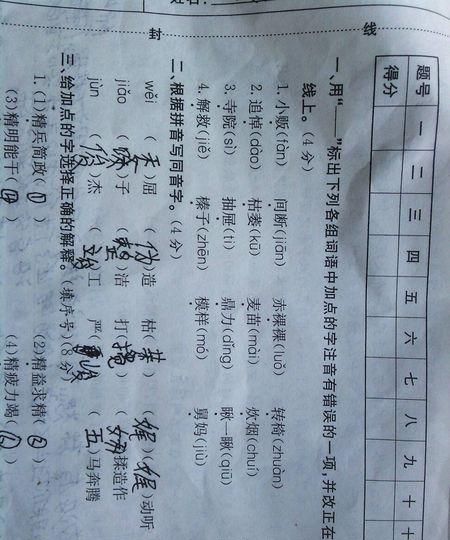 姓名:
封 线
题号 一 二 三 四 五 六 七 八 九 十
得分
一、用“____”标出下列各组词语中加点的字注音有错误的一项,并改正在
线上。(4分)
1. 小贩(fàn) 间断(jiān) 赤裸裸(luǒ) 转椅(zhuàn)
2. 追悼(dào) 枯萎(kū) 麦苗(mài) 炊烟(chuí)
3. 寺院(sì) 抽屉(ti) 鼎力(dǐng) 瞅一瞅(qiū)
4. 解救(jiě) 榛子(zhēn) 模样(mó) 舅妈(jiù)
二、根据拼音写同音字。(4分)
wěi ( )屈 (伪)造 枯( ) (娓)(娓)动听
jiǎo ( )子 ( )洁 打( ) ( )揉造作
jùn (俊)杰 ( )工 严( ) ( )马奔腾
三、给加点的字选择正确的解释。(填序号)(8分)
1. (1)精兵简政( ) (2)精益求精( )
(3)精明能干( ) (4)精疲力竭( )